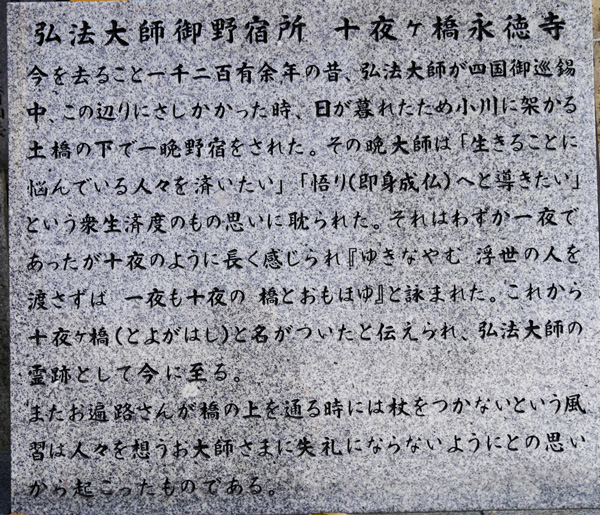 弘法大師御野宿所 十夜ヶ橋永徳寺
今を去ること一千二百有余年の昔、弘法大師が四国御巡錫
中、この辺りにさしかかった時、日が暮れたため小川に架かる
土橋の下で一晩野宿をされた。その晩大師は「生きることに
悩んでいる人々を済いたい」「悟り(即身成仏)へと導きたい」
という衆生済度のもの思いに耽られた。それはわずか一夜で
あったが十夜のように長く感じられ『ゆきなやむ 浮世の人を
渡さずば 一夜も十夜の 橋とおもほゆ』と詠まれた。これから
十夜ヶ橋(とよがはし)と名がついたと伝えられ、弘法大師の
霊跡として今に至る。
またお遍路さんが橋の上を通る時には杖をつかないという風
習は人々を想うお大師さまに失礼にならないようにとの思い
から起こったものである。